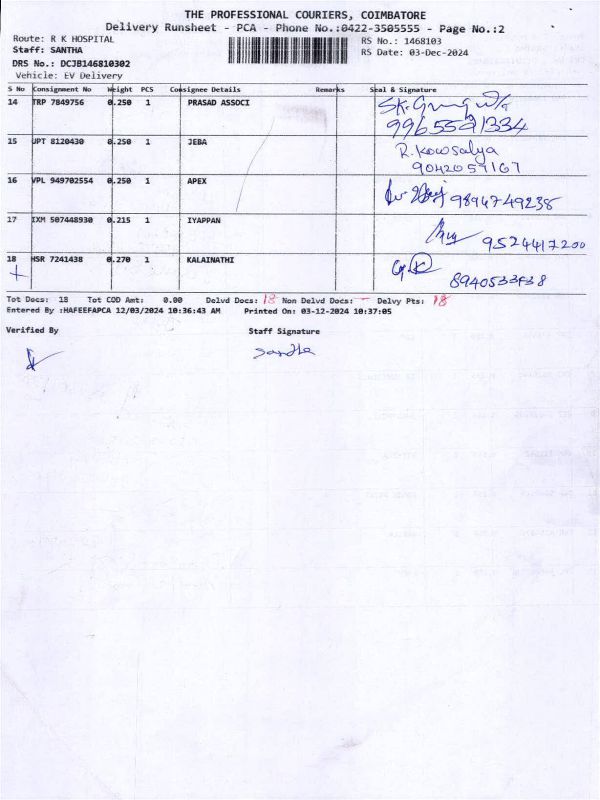 THE PROFESSIONAL COURIERS, COIMBATORE
Delivery Runsheet - PCA - Phone No.:0422-3505555 - Page No.:2
Route: R K HOSPITAL RS No.: 1468103
Staff: SANTHA RS Date: 03-Dec-2024
DRS No.: DCJB146810302
Vehicle: EV Delivery
S No Consignment No Weight PCS Consignee Details Remarks Seal & Signature
14 TRP 7849756 0.250 1 PRASAD ASSOCI
9965591334
15 JPT 8120430 0.250 1 JEBA R. Kowsalya
9042057167
16 VPL 949702554 0.250 1 APEX 9894749238
17 IXM 507448930 0.215 1 IYAPPAN 9524417200
18 HSR 7241438 0.270 1 KALAINATHI
Tot Docs: 18 Tot COD Amt: 0.00 Delvd Docs: 18 Non Delvd Docs: - Delvy Pts: 18
Entered By :HAFEEFAPCA 12/03/2024 10:36:43 AM Printed On: 03-12-2024 10:37:05
Verified By Staff Signature
Santha